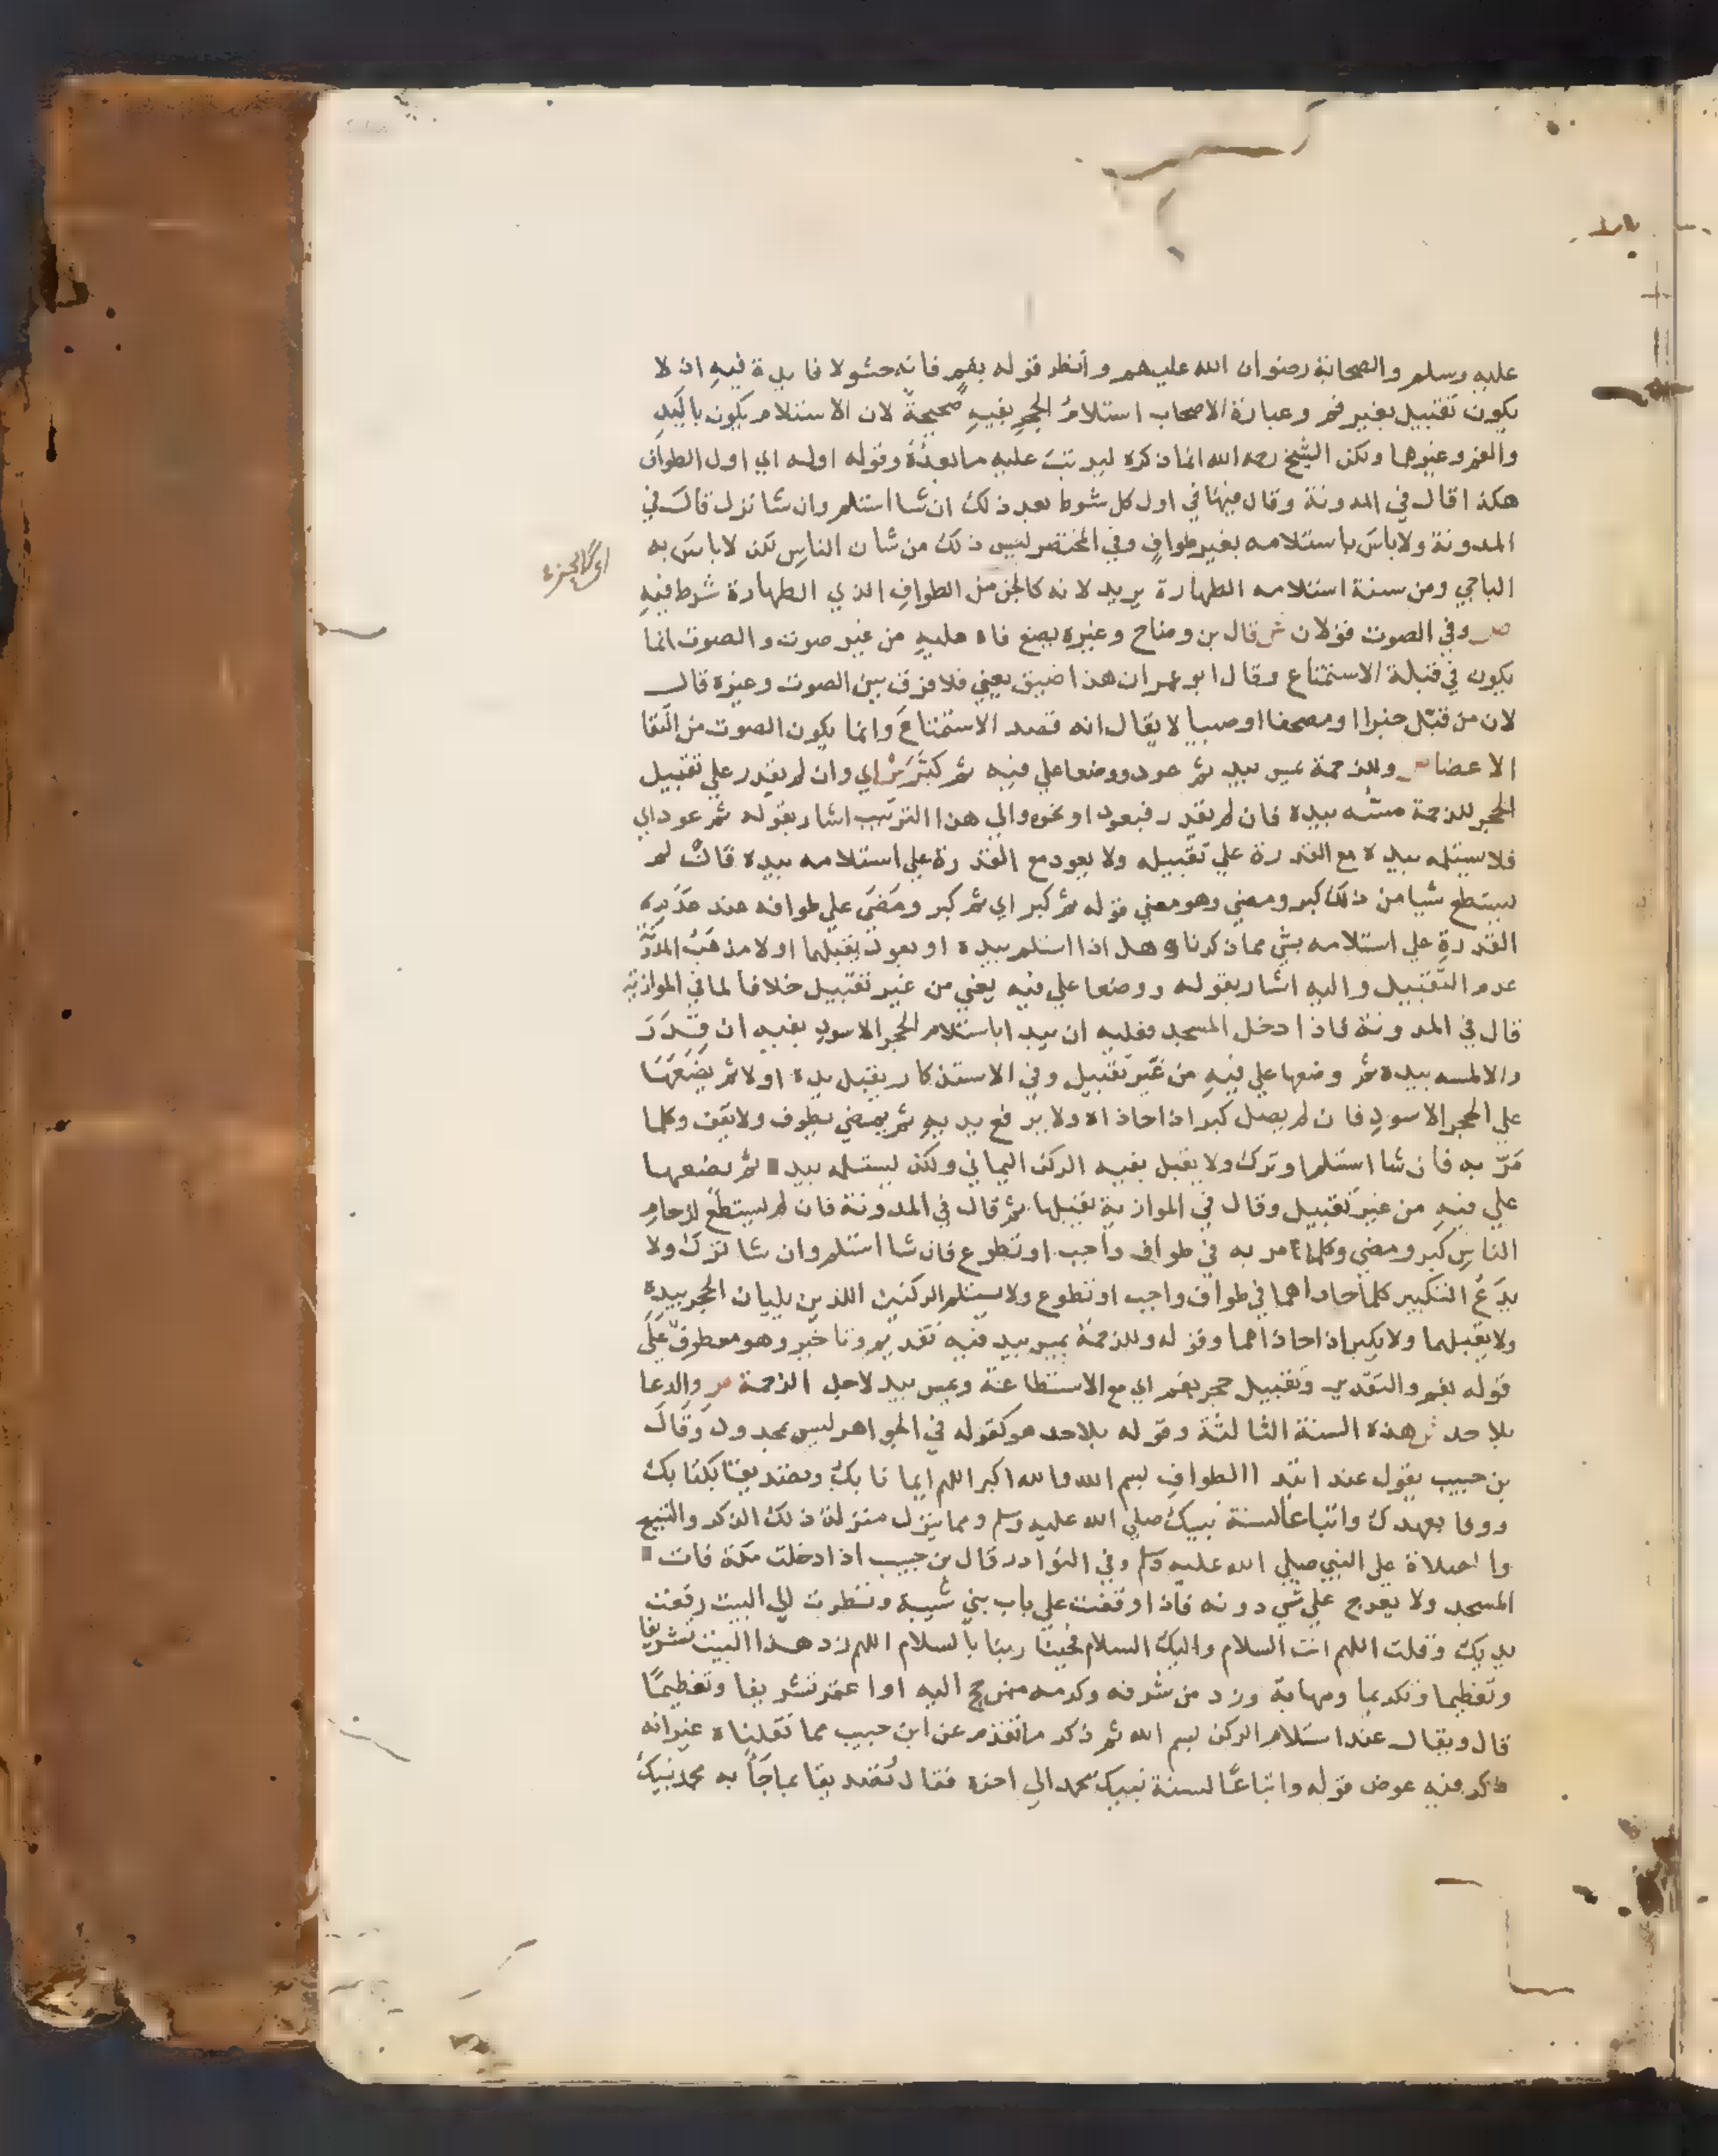 عليه وسلم والصحابة رضوان الله عليهم وانظر قوله بفم فانه حشو لا فايدة فيه اذ لا
يكون تقبيل بغير فم وعبارة الاصحاب استلامُ الحجرِ بفيهِ صحيحةٌ لان الاستلام يكون باليدِ
والفم وغيرها ولكن الشيخ رحمه الله انما ذكره ليرتب عليه ما بعده وقوله اوله اي اول الطواف
هكذا قال في المدونة وقال فيها في اول كل شوط بعد ذلك ان شا استلم وان شا ترك قال في
المدونة ولا باس باستلامه بغير طوافٍ وفي المختصر ليس ذلك من شان الناسِ لكن لا باس به
الباجي ومن سنة استلامه الطهارة يريد لانه كالجزء من الطوافِ الذي الطهارة شرط فيهِ
ص وفي الصوت قولان ش قال بن وضاح وغيره يضع فاه عليهِ من غير صوت والصوت انما
يكون في قبلة الاستمتاع وقال ابو عمران هذا ضيق يعني فلا فرق بين الصوت وغيره قال
لان من قبّل خبزا او مصحفا او صبيا لا يقال انه قصد الاستمتاعَ وانما يكون الصوت من التقا
الاعضا ص وللزحمة مس بيد ثم عود ووضعا على فيه ثم كبَّرَ ش اي وان لم يقدر على تقبيل
الحجر للزحمة مسّه بيده فان لم يقدر فبعود او نحوه والى هذا الترتيب اشار بقوله ثم عود اي
فلا يستلمه بيده مع القدرة على تقبيله ولا بعود مع القدرة على استلامه بيده فان لم
يستطع شيا من ذلك كبر ومضى وهو معنى قوله ثم كبر اي ثم كبر ومَضَى على طوافه عند
القدرةِ على استلامه بشي مما ذكرنا وهل اذا استلم بيده او بعود يقبلهما او لا مذهبُ المدوَّنة
عدم التقبيل واليه اشار بقوله ووضعا على فيه يعني من غير تقبيل خلافا لما في الموازية
قال في المدونة فاذا دخل المسجد فعليه ان يبدا باستلام الحجر الاسود بفيه ان قَدَرَ
والا لمسه بيده ثم وضعها على فيهِ من غير تقبيل وفي الاستذكار يقبل يده اولا ثم يضَعَهَا
على الحجر الاسودِ فان لم يصل كبر اذا حاذاه ولا يرفع يديهِ ثم يمضي يطوف ولا يقف وكلما
مَرّ به فان شا استلم او ترك ولا يقبل بفيه الركن اليماني ولكن يستلمه بيده ثم يضعها
على فيهِ من غير تقبيل وقال في الموازية يقبلها ثم قال في المدونة فان لم يستطع لزحامِ
الناسِ كبر ومضى وكلما مر به في طواف واجب او تطوع فان شا استلم وان شا ترك ولا
يدَعُ التكبير كلما حاذاهما في طواف واجب او تطوع ولا يستلم الركنين اللذين يليان الحجر بيدهِ
ولا يقبلهما ولا يكبر اذا حاذاهما وقوله وللزحمة بمس بيد فيه تقديم وتاخير وهو معطوفٌ على
قوله بفم والتقدير وتقبيل حجر بفم اي مع الاستطاعة وبمس بيد لاجل الزحمة ص والدعا
بلا حد ش هذه السنة الثالثة وقوله بلا حد هو كقوله في الجواهر ليس بمحدود وقال
بن حبيب يقول عند ابتدا الطوافِ بسم الله والله اكبر اللهم ايمانا بك وتصديقا بكتابك
ووفا بعهدك واتباعا لسنة نبيك صلى الله عليه وسلم ومما ينزل منزلة ذلك الذكر والتسبيح
والصلاة على النبي صلى الله عليه وسلم وفي النوادر قال بن حبيب اذا دخلت مكة فات
المسجد ولا يعرج على شي دونه فاذا وقفت على باب بني شيبة ونظرت الى البيت رفعت
يديك وقلت اللهم انت السلام واليك السلام فحينا ربنا بالسلام اللهم زد هذا البيت تشريفا
وتعظيما وتكريما ومهابة وزد من شرفه وكرمه ممن حج اليه او اعتمر تشريفا وتعظيمًا
قال ويقال عند استلام الركن بسم الله ثم ذكر ما تقدم عن ابن حبيب مما نقلناه غير انه
ذكر فيه عوض قوله واتباعًا لسنة نبيك محمد الى اخره فقال تصديقا بما جَاَ به محمد نبيك
اي كالجزء